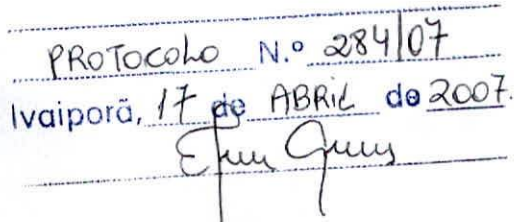 PROTOCOLO N.º 284/07
Ivaiporã, 17 de ABRIL de 2007.